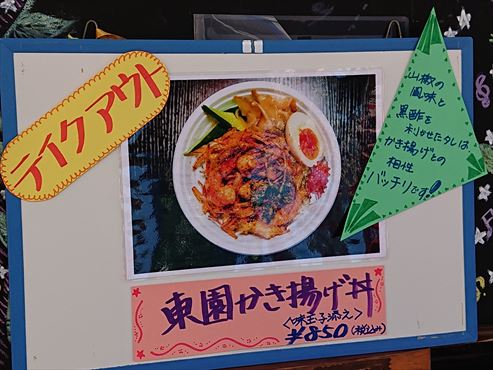 テイクアウト
山椒の
風味と
黒酢を
利かせたタレは
かき揚げとの
相性
バッチリです!!
東園かき揚げ丼
<味玉子添え>
¥850(税込み)